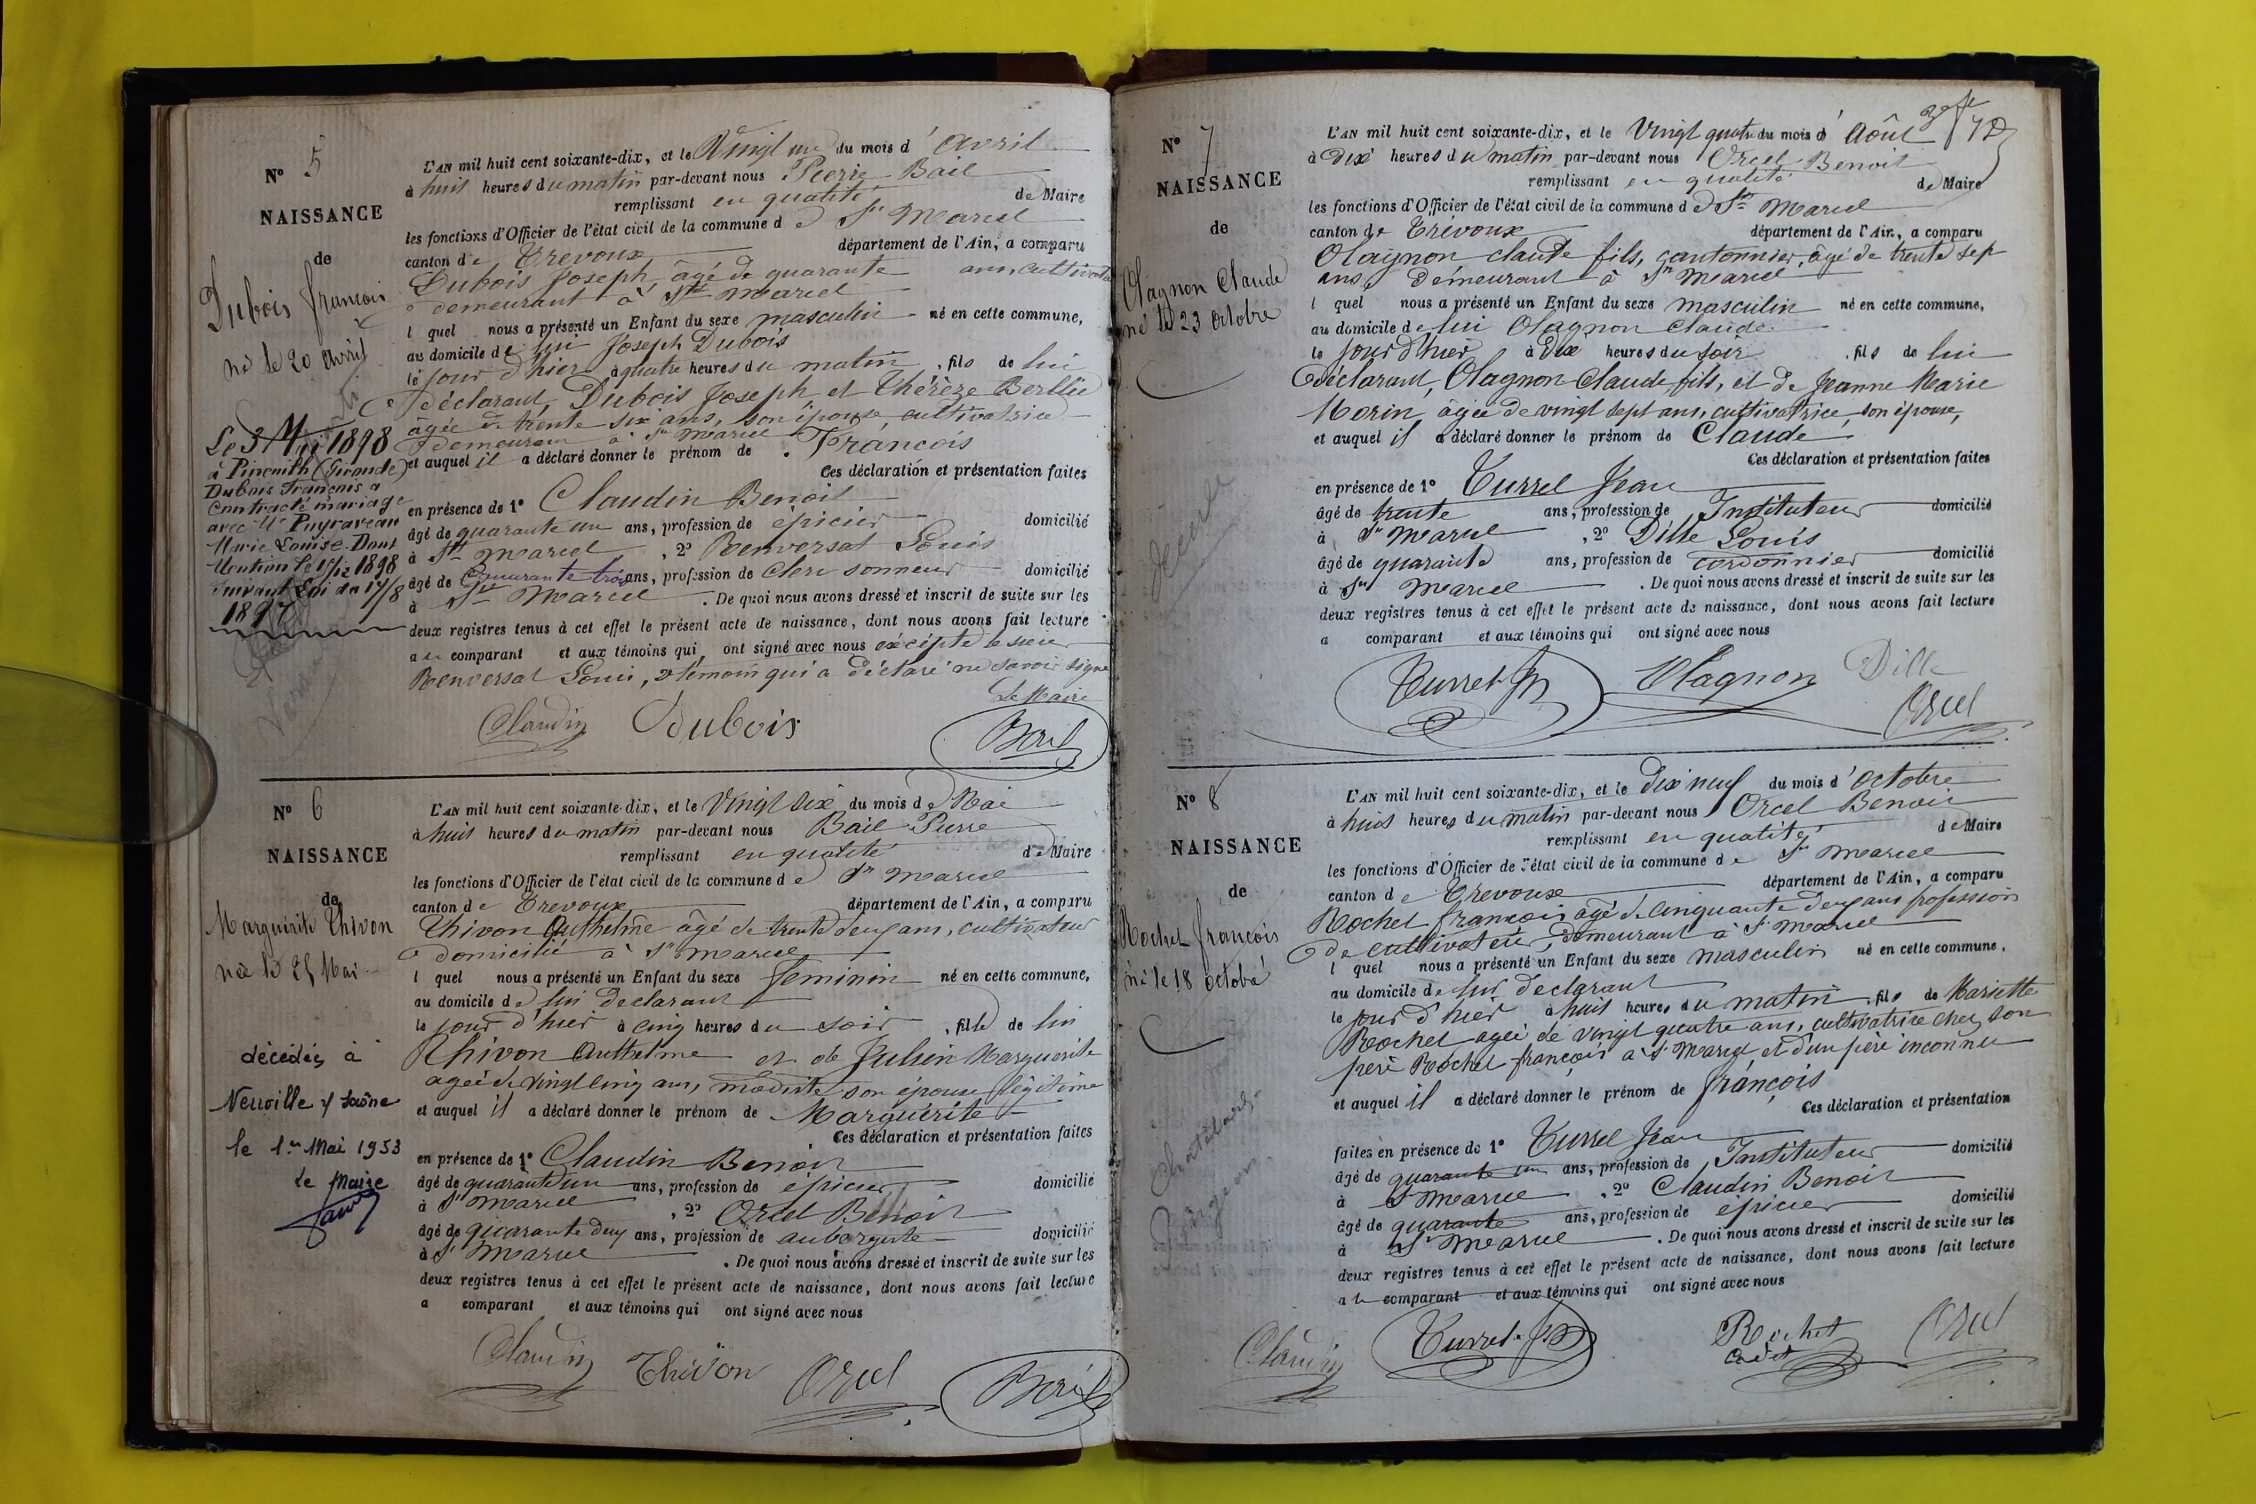 N° 5
NAISSANCE
de
Dubois françois
né le 20 avril
Le 3 Mai 1898
à (Gironde)
Dubois François a
Contracté mariage
avec Puyraveau
Marie Louise. Dont
Mention le 1898
Suivant Loi du 17/8
1897
L'AN mil huit cent soixante-dix, et le Vingt un du mois d'avril
à huit heures du matin par-devant nous Pierre Bail
remplissant en qualité de Maire
les fonctions d'Officier de l'état civil de la commune de St Marcel
canton de Trevoux département de l'Ain, a comparu
Dubois Joseph, âgé de quarante ans, cultivateur
demeurant à St Marcel
l quel nous a présenté un Enfant du sexe masculin né en cette commune,
au domicile de lui Joseph Dubois
le jour d'hier à quatre heures du matin, fils de lui
déclarant, Dubois Joseph et Thérèze Berllie
âgée de trente six ans, son épouse, cultivatrice
demeurant à St Marcel
et auquel il a déclaré donner le prénom de François
Ces déclaration et présentation faites
en présence de 1° Claudin Benoit
âgé de quarante un ans, profession de épicier domicilié
à St Marcel, 2° Renversat Louis
âgé de Cinquante trois ans, profession de clerc sonneur domicilié
à St Marcel. De quoi nous avons dressé et inscrit de suite sur les
deux registres tenus à cet effet le présent acte de naissance, dont nous avons fait lecture
au comparant et aux témoins qui ont signé avec nous excépté le sieur
Renversat Louis, 2e témoin qui a déclaré ne savoir signe
Le Maire
Claudin Dubois Bail
N° 6
NAISSANCE
de
Marguerite Thivon
née le 25 Mai
décédée à
Neuville s/ Saône
le 1er Mai 1953
Le Maire
L'AN mil huit cent soixante-dix, et le Vingt six du mois de Mai
à huit heures du matin par-devant nous Bail Pierre
remplissant en qualité de Maire
les fonctions d'Officier de l'état civil de la commune de St Marcel
canton de Trevoux département de l'Ain, a comparu
Thivon Anthelme âgé de trente deux ans, cultivateur
domicilié à St Marcel
l quel nous a présenté un Enfant du sexe feminin né en cette commune,
au domicile de lui declarant
le jour d'hier à cinq heures du soir, fille de lui
Thivon Anthelme et de Julien Marguerite
agée de vingt cinq ans, modiste son épouse légitime
et auquel il a déclaré donner le prénom de Marguerite
Ces déclaration et présentation faites
en présence de 1° Claudin Benoit
âgé de quarante un ans, profession de épicier domicilié
à St Marcel, 2° Orcel Benoit
âgé de quarante deux ans, profession de aubergiste domicilié
à St Marcel. De quoi nous avons dressé et inscrit de suite sur les
deux registres tenus à cet effet le présent acte de naissance, dont nous avons fait lecture
a comparant et aux témoins qui ont signé avec nous
Claudin Thivon Orcel Bail
N° 7
NAISSANCE
de
Olagnon Claude
né le 23 octobre
L'AN mil huit cent soixante-dix, et le Vingt quatre du mois d'Août
à dix heures du matin par-devant nous Orcel Benoit
remplissant en qualité de Maire
les fonctions d'Officier de l'état civil de la commune de St Marcel
canton de Trévoux département de l'Ain, a comparu
Olagnon claude fils, cantonnier, âgé de trente sept
ans, demeurant à St Marcel
l quel nous a présenté un Enfant du sexe masculin né en cette commune,
au domicile de lui Olagnon Claude
le jour d'hier à dix heures du soir, fils de lui
déclarant, Olagnon Claude fils, et de Jeanne Marie
Morin, âgée de vingt sept ans, cultivatrice, son épouse,
et auquel il a déclaré donner le prénom de Claude
Ces déclaration et présentation faites
en présence de 1° Turrel Jean
âgé de trente ans, profession de Instituteur domicilié
à St Marcel, 2° Dille Louis
âgé de quarante ans, profession de cordonnier domicilié
à St Marcel. De quoi nous avons dressé et inscrit de suite sur les
deux registres tenus à cet effet le présent acte de naissance, dont nous avons fait lecture
a comparant et aux témoins qui ont signé avec nous
Turrel Jn Olagnon Dille
Orcel
N° 8
NAISSANCE
de
Rochet françois
né le 18 octobre
L'AN mil huit cent soixante-dix, et le dix neuf du mois d'octobre
à huit heures du matin par-devant nous Orcel Benoit
remplissant en qualité de Maire
les fonctions d'Officier de l'état civil de la commune de St Marcel
canton de Trevoux département de l'Ain, a comparu
Rochet françois âgé de cinquante deux ans profession
de cultivateur, demeurant à St Marcel
l quel nous a présenté un Enfant du sexe masculin né en cette commune,
au domicile de lui declarant
le jour d'hier à huit heures du matin, fils de Mariette
Rochet agée de vingt quatre ans, cultivatrice chez son
père Rochet françois à St Marcel et d'un père inconnu
et auquel il a déclaré donner le prénom de françois
Ces déclaration et présentation
faites en présence de 1° Turrel Jean
âgé de quarante un ans, profession de Instituteur domicilié
à St Marcel, 2° Claudin Benoit
âgé de quarante ans, profession de épicier domicilié
à St Marcel. De quoi nous avons dressé et inscrit de suite sur les
deux registres tenus à cet effet le présent acte de naissance, dont nous avons fait lecture
a le comparant et aux témoins qui ont signé avec nous
Claudin Turrel Jn Rochet Orcel
cadet